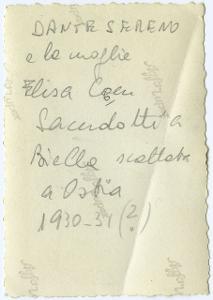 DANTE SERENO
e la moglie
Elisa Coen
Sacerdotti a
Biella scattata
a Ostia
1930-31 (?)